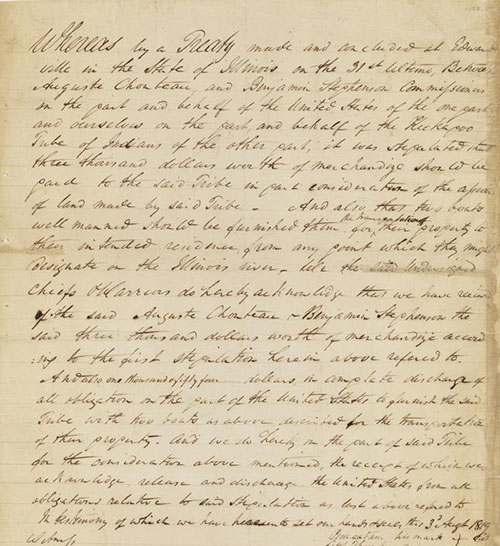 Whereas by a Treaty made and concluded at Edward
ville in the State of Illinois on the 31st Ultimo, Between
Auguste Chouteau, and Benjamin Stephenson Commissioners
on the part and behalf of the United States of the one part
and ourselves on the part and behalf of the Kickapoo
Tribe of Indians of the other part; it was stipulated that
three thousand dollars worth of merchandize should be
paid to the said Tribe in part consideration of the
of land made by said Tribe - And also that two boats
well manned should be furnished them for the transportation of their property to
their intended residence from any point which they might
designate on the Illinois river. We the said Undersigned
Chiefs & Warriors do hereby acknowledge that we have
of the said Auguste Chouteau & Benjamin Stephenson the
said three thousand dollars worth of merchandize accord
:ing to the first stipulation herein above refered to
And also one thousand & fifty four dollars, in complete discharge of
all obligation on the part of the United States to furnish the said
Tribe with two boats as above described for the transportation
of their property. And we do hereby on the part of said Tribe
for the consideration above mentioned, the receipt of which we
acknowledge, release and discharge the United States from all
obligations relative to said stipulation as last above refered to
In testimony of which we have hereunto set our hands & seals, this 3d Augt 1819
Witness his mark